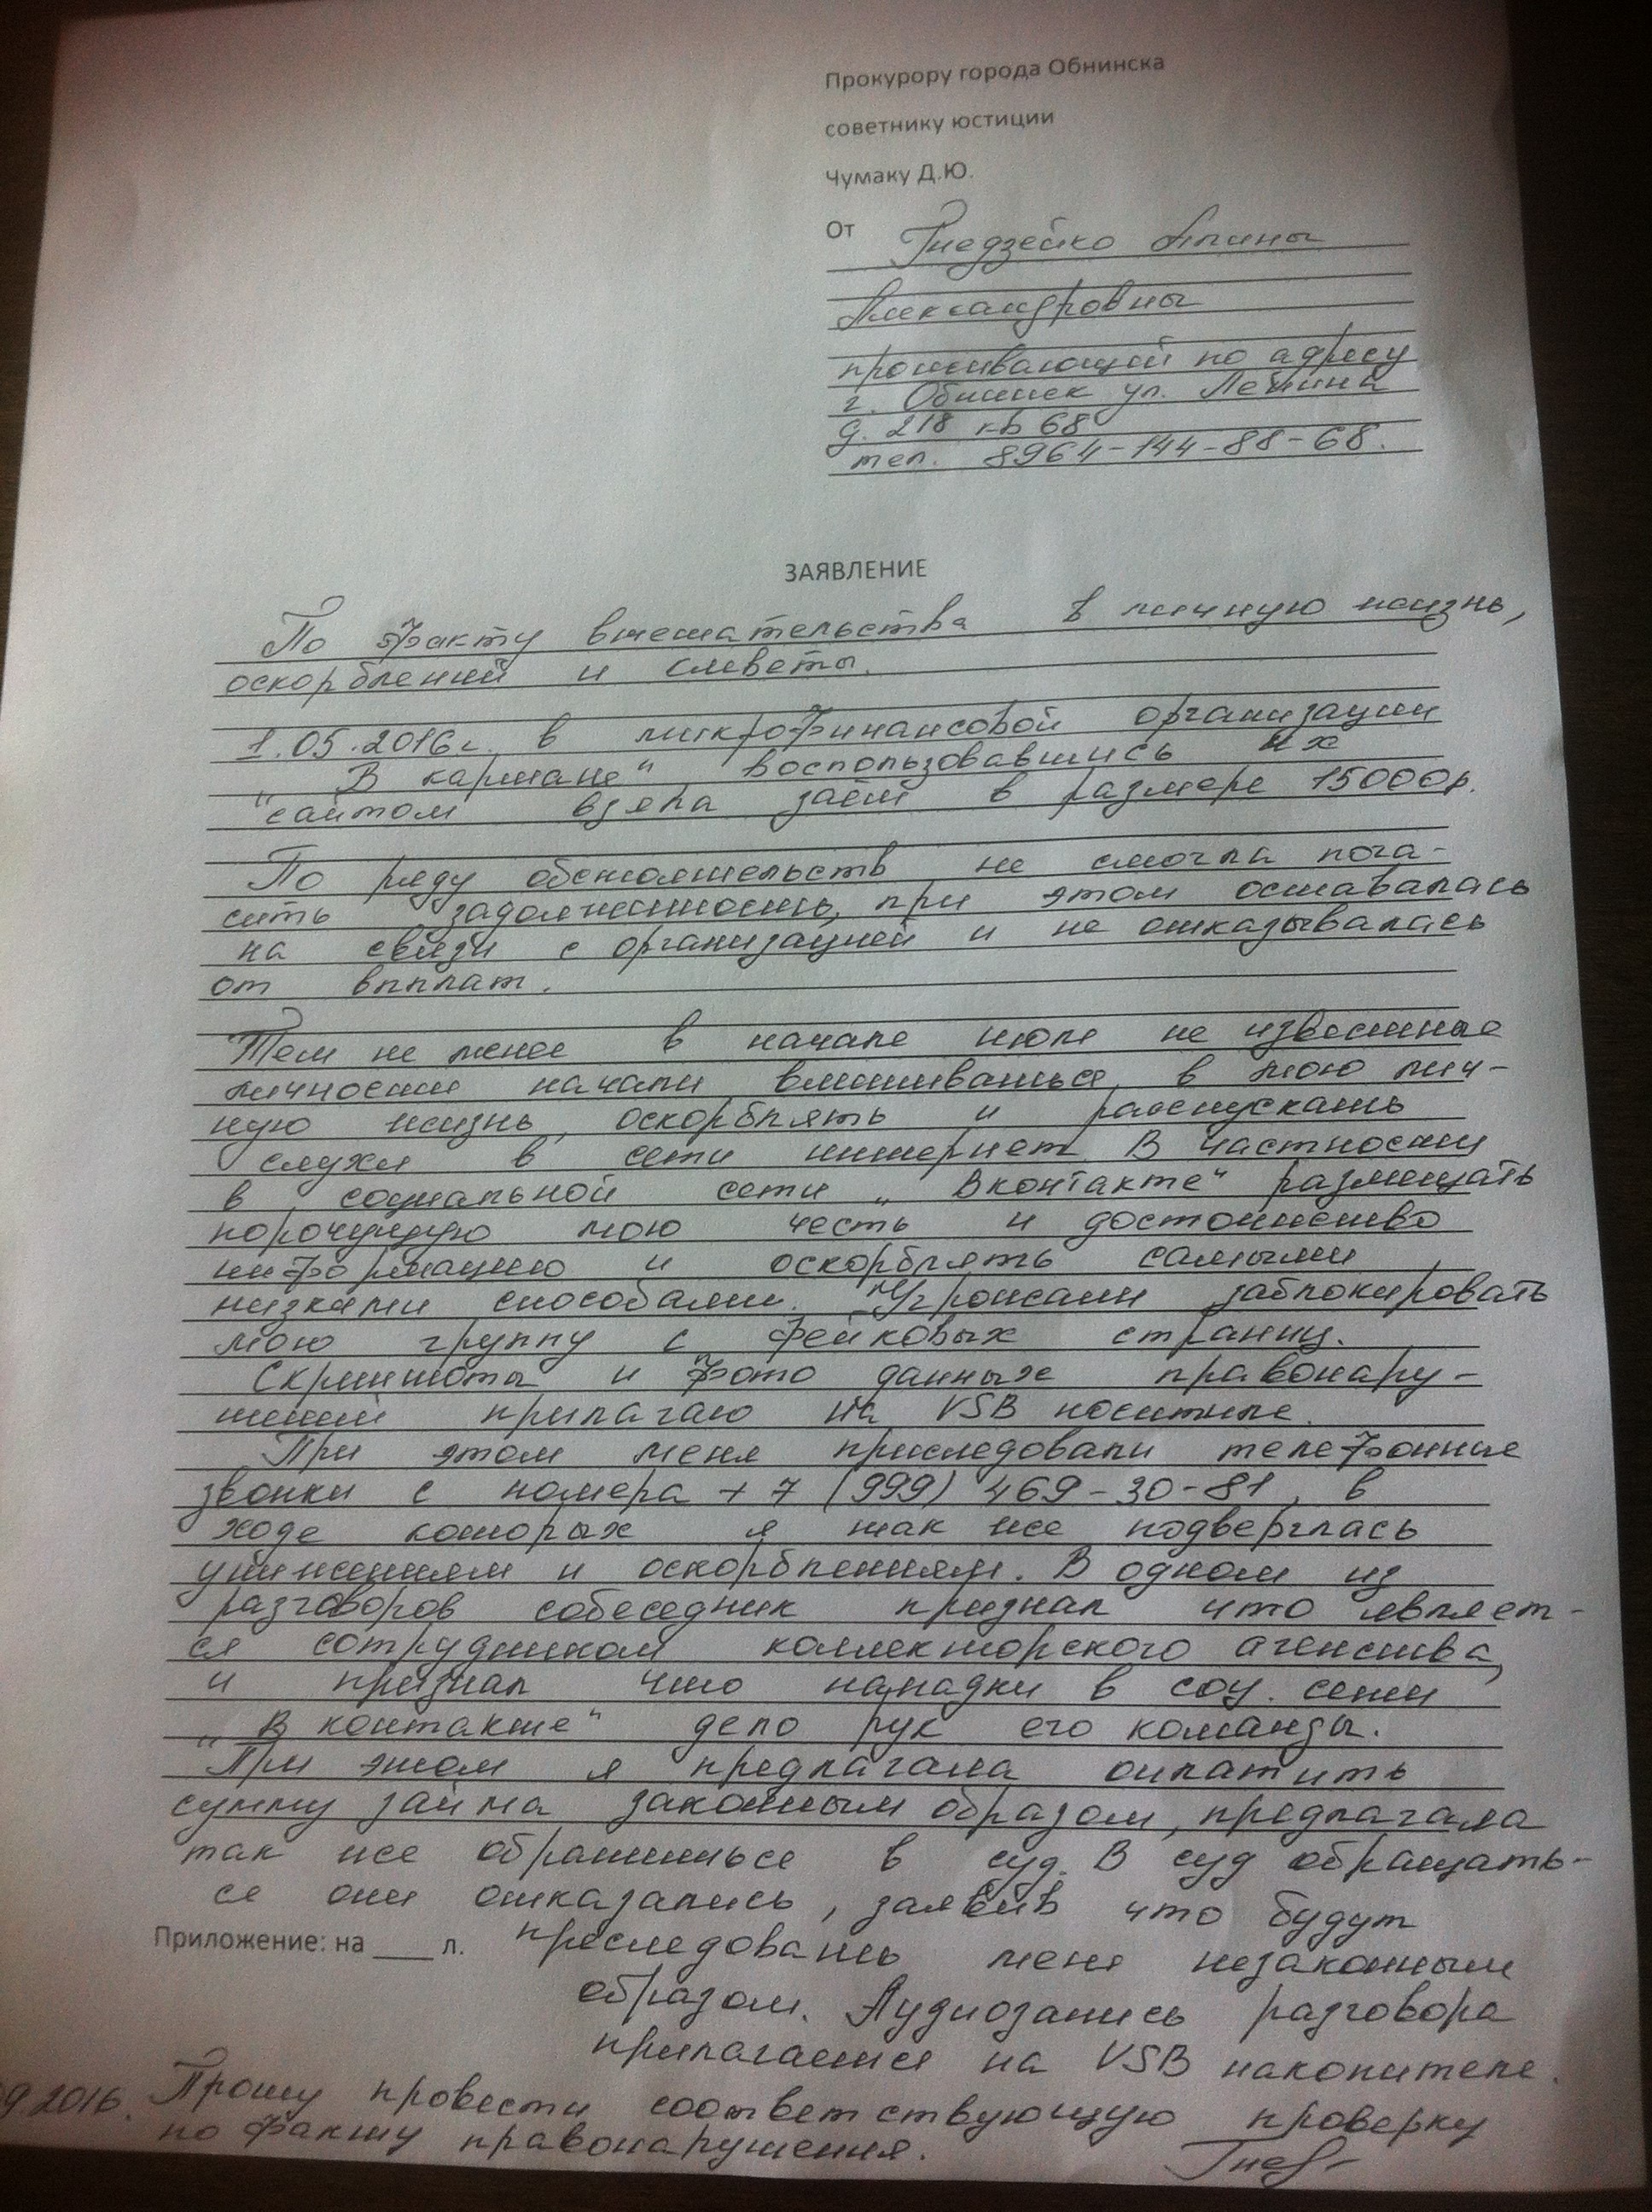 Прокурору города Обнинска
советнику юстиции
Чумаку Д.Ю.
От Гнедзейко Алины
Александровны
проживающий по адресу
г. Обнинск ул. Ленина
д. 218 кв 68
тел. 8964-144-88-68.
ЗАЯВЛЕНИЕ
По факту вмешательства в личную жизнь,
оскорблений и клеветы.
1.05.2016г. в микрофинансовой организации
"В кармане" воспользовавшись их
сайтом взяла заём в размере 15000р.
По ряду обстоятельств не смогла пога-
сить задолженность, при этом оставалась
на связи с организацией и не отказывалась
от выплат.
Тем не менее в начале июле не известные
личности начали вмешиваться в мою лич-
ную жизнь, оскорблять и распускать
слухи в сети интернет. В частности
в социальной сети „Вконтакте" размещать
порочущую мою честь и достоинство
информацию и оскорблять самыми
низкими способами. Угрожали заблокировать
мою группу с фейковых страниц.
Скриншоты и фото данных правонару-
шений прилагаю на VSB носителе.
При этом меня приследовали телефонные
звонки с номера +7 (999) 469-30-81, в
ходе которых я так же подверглась
унижениям и оскорблениям. В одном из
разговоров собеседник признал что являет-
ся сотрудником коллекторского агенства,
и признал что нападки в соц. сети
„В контакте" дело рук его команды.
При этом я предлагала оплатить
сумму займа законным образом, предлагала
так же обратиться в суд. В суд обращать-
ся они отказались, заявив что будут
преследовать меня незаконным
Приложение: на ___ л.
образом. Аудиозапись разговора
прилагается на VSB накопителе.
9.2016. Прошу провести соответствующую проверку
по факту правонарушения.